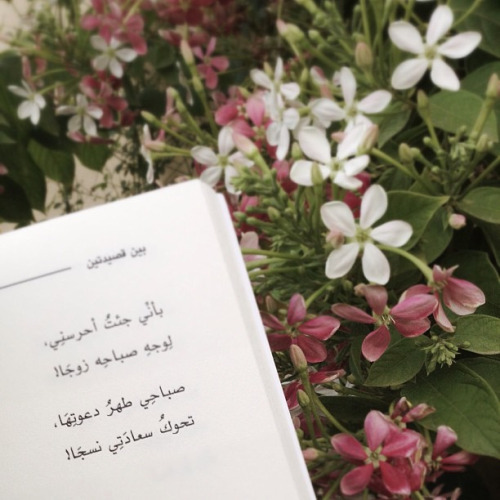 بين قصيدتين
بأنّي جئتُ أحرسني،
لِوجهِ صباحِه زوجًا!
صباحِي طهرُ دعوتِهَا،
تحوكُ سعادَتِي نسجًا!